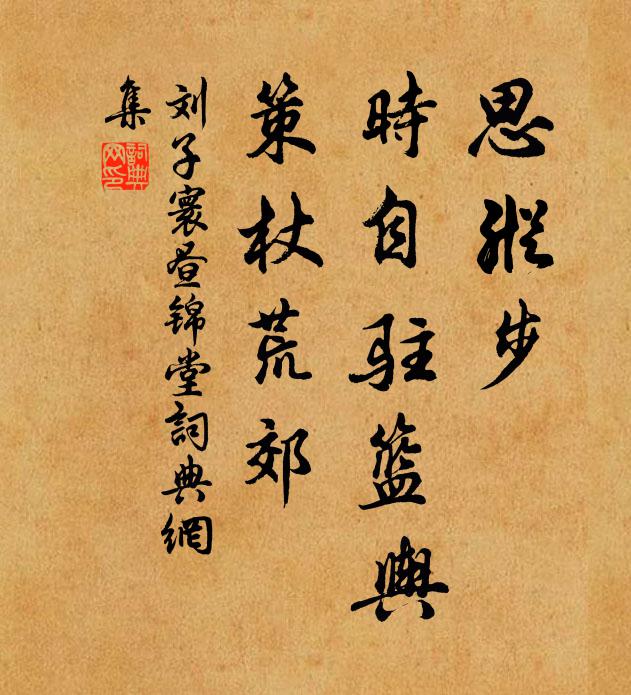 思縱步
時自駐籃輿
策杖荒郊
刘子寰昼锦堂詞典網
集
詞典
网印